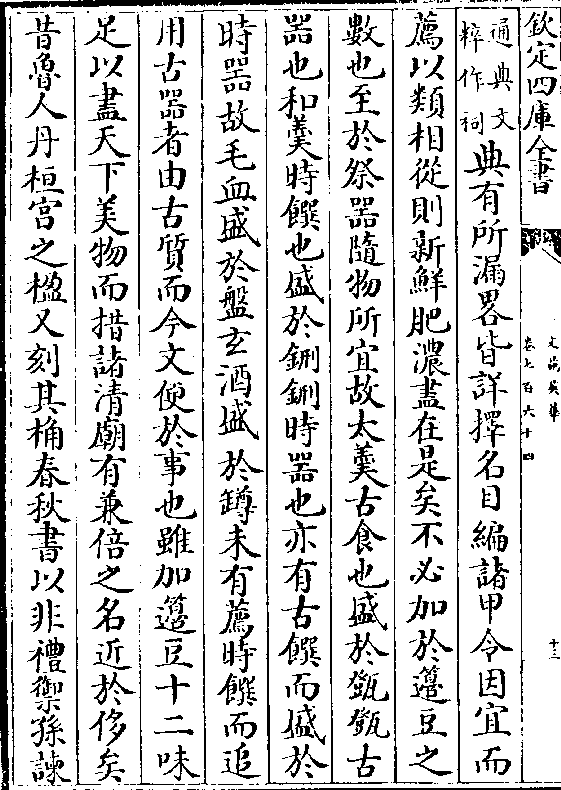 欽定四庫全書
文苑英華
卷七百六十四
十三
通典文
粹作祠
典有所漏畧皆詳擇名目編諸甲令因宜而
薦以類相從則新鮮肥濃盡在是矣不必加於籩豆之
數也至於祭器隨物所宜故太羮古食也盛於㽅㽅古
器也和羮時饌也盛於鉶鉶時器也亦有古饌而盛於
時器故毛血盛於盤玄酒盛於罇未有薦時饌而追
用古器者由古質而今文便於事也雖加籩豆十二味
足以盡天下美物而措諸清廟有兼倍之名近於侈矣
昔魯人丹桓宫之楹又刻其桷春秋書以非禮禦孫諫